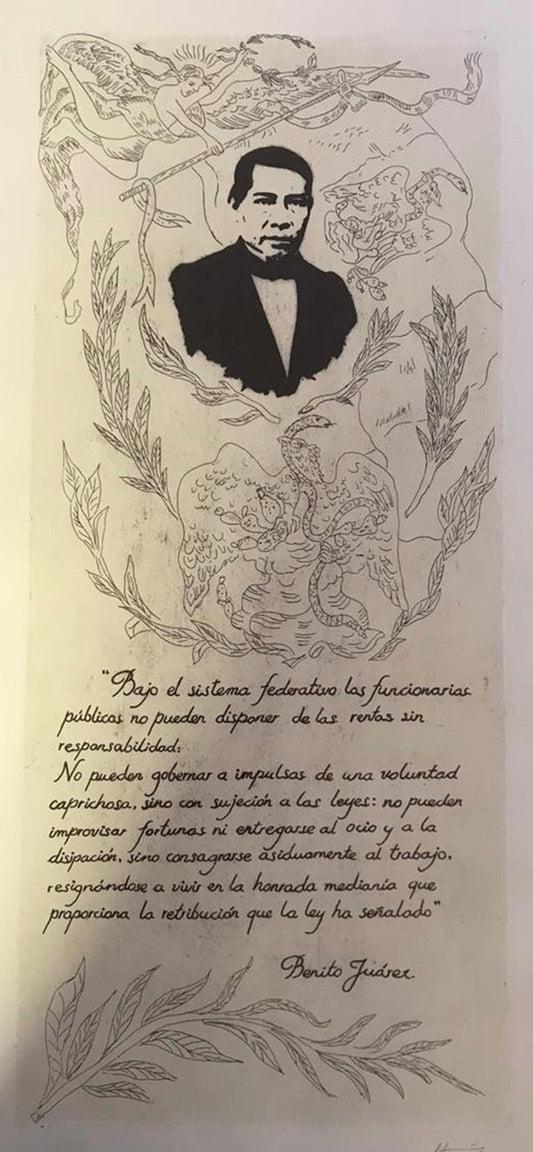 "Bajo el sistema federativo los funcionarios
públicos no pueden disponer de las rentas sin
responsabilidad:
No pueden gobernar a impulsos de una voluntad
caprichosa, sino con sujeción a las leyes: no pueden
improvisar fortunas ni entregarse al ocio y a la
disipación, sino consagrarse asiduamente al trabajo,
resignándose a vivir en la honrada medianía que
proporciona la retribución que la ley ha señalado"
Benito Juárez